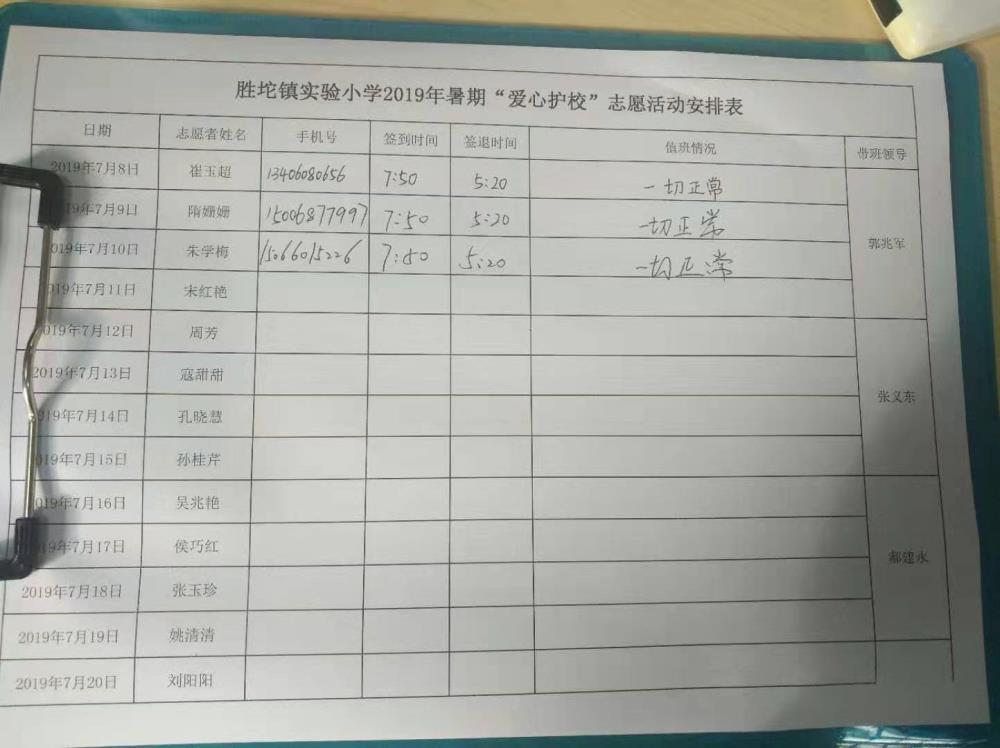 胜坨镇实验小学2019年暑期“爱心护校”志愿活动安排表
日期 志愿者姓名 手机号 签到时间 签退时间 值班情况 带班领导
2019年7月8日 崔玉超 13406080656 7:50 5:20 一切正常
019年7月9日 隋姗姗 15006877997 7:50 5:20 一切正常
郭兆军
019年7月10日 朱学梅 15066015226 7:50 5:20 一切正常
019年7月11日 宋红艳
019年7月12日 周芳
2019年7月13日 寇甜甜
张义东
019年7月14日 孔晓慧
019年7月15日 孙桂芹
019年7月16日 吴兆艳
019年7月17日 侯巧红
郝建永
2019年7月18日 张玉珍
2019年7月19日 姚清清
2019年7月20日 刘阳阳